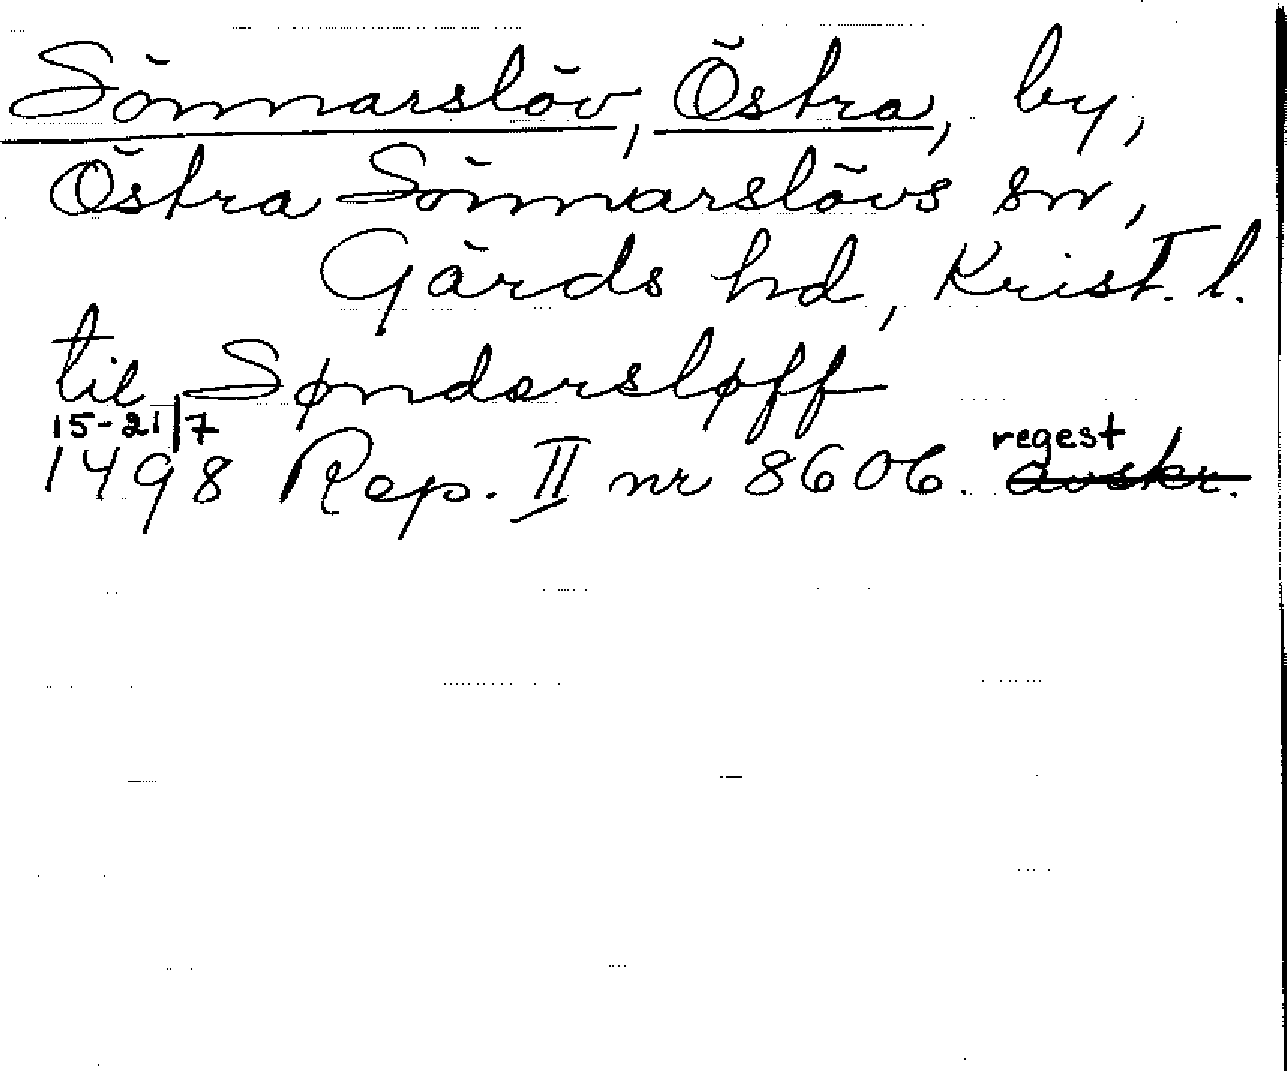 Sönnarslöv, Östra, by,
Östra Sönnarslövs sn,
Gärds hd, Krist. l.
til Søndersløff
15-21/7
1498 Rep. II nr 8606. regest avskr.